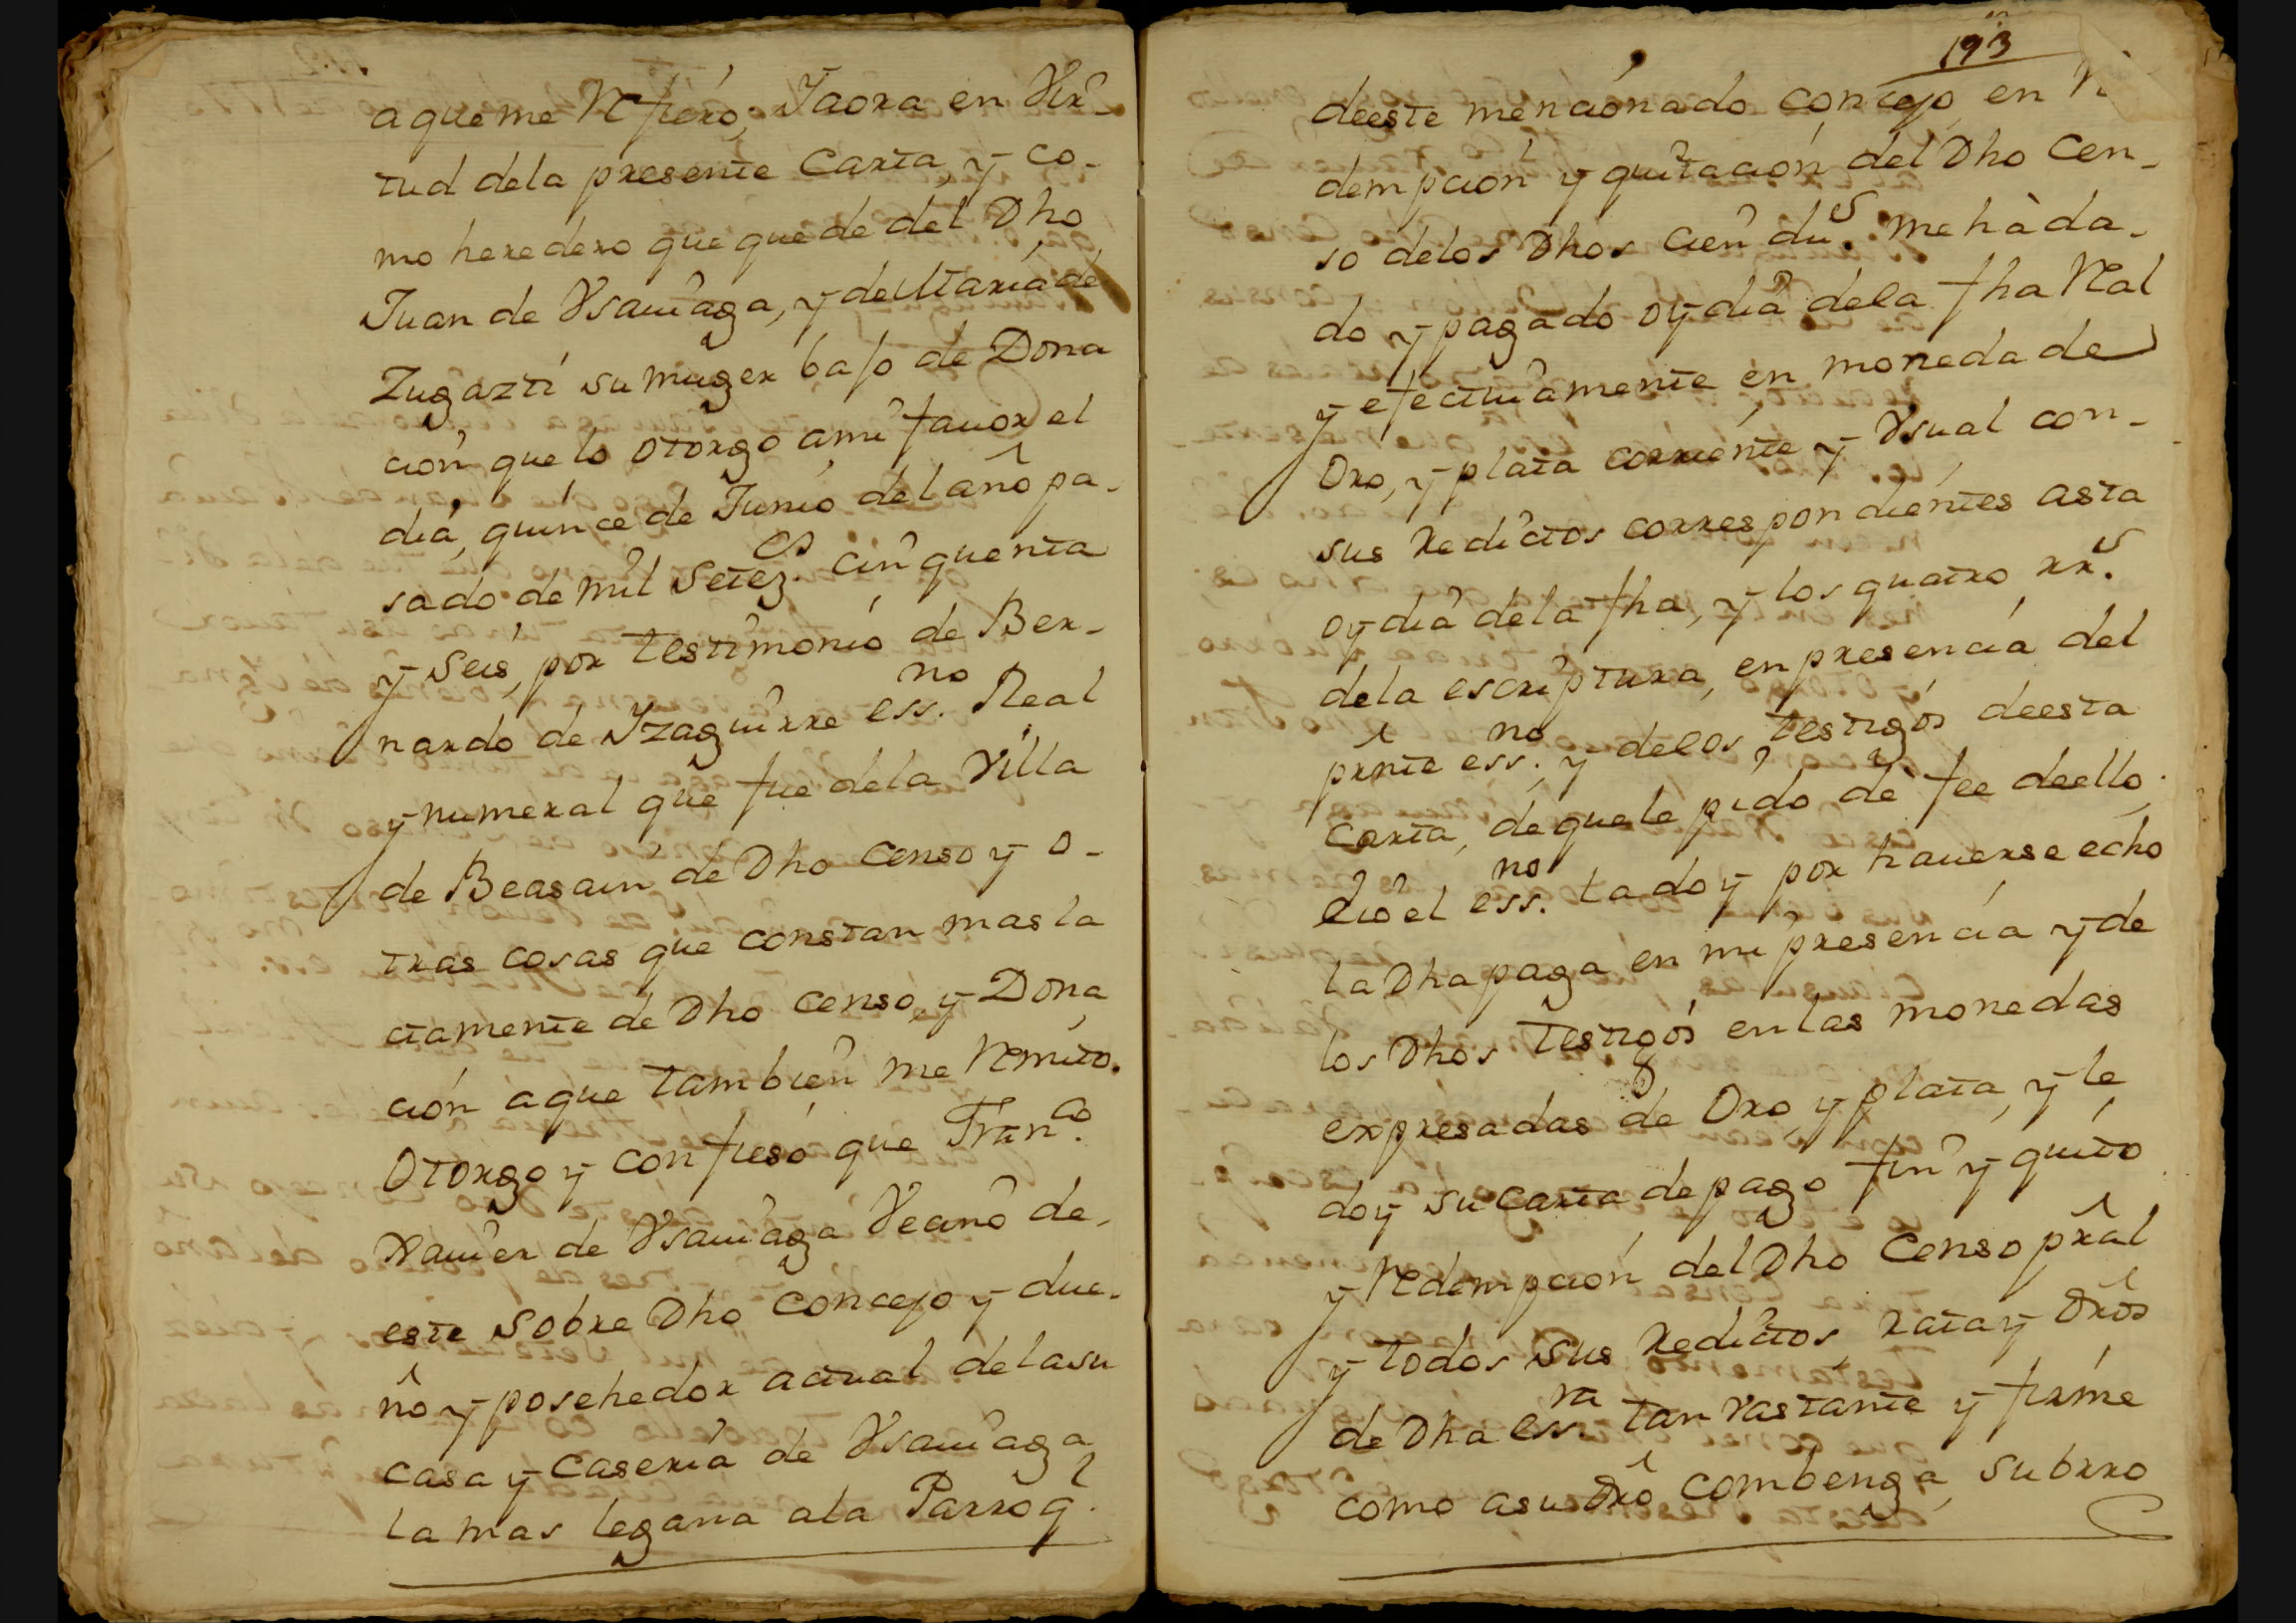 aqueme Refiero; Yaora en Vir-
tud dela presente Carta, y co-
mo heredero que quede del Dho
Juan de Vsauiaga, y de Maria de
Zugazti su muger bajo de Dona
cion que lo otorgo ami fauor el
dia, quince de Junio del año pa-
sado de mil Setez.os cinquenta
y Seis, por testimonio de Ber-
nardo de Yzaguirre ess.no Real
y numeral que fue dela Villa
de Beasain de Dho Censo y o-
tras cosas que constan mas la
ctamente de Dho Censo, y Dona
ción aque tambien me Remito.
Otorgo y confieso que Fran.co
Xauier de Vsauiaga Veano de-
este sobre Dho Concejo y due-
ño y posehedor actual dela su
casa y caseria de Vsauiaga
la mas legana ala Parroq.l
193
deeste mencionado conçejo en R
dempcion y quitacion del Dho Cen-
so delos Dhos cien du.s me hà da-
do y pagado oy dia dela fha Real
y efectiuamente en moneda de
Oro, y plata corriente y Vsual con-
sus Redictos correspondientes asta
oy dia dela fha, y los quatro rr.s
dela escriptura, en presencia del
prnte ess.no y delos testigos deesta
Carta, de que le pido de fee deello,
e io el ess.no la doy por hauerse echo
la Dha paga en mi presencia y de
los Dhos testigos en las monedas
expresadas de Oro, y plata, y le
doy su carta de pago fin y quito
y Redempcion del Dho Censo pral
y todos sus Redictos, rata y dros
de Dha ess.ra tan vastante y firme
como asu dro combenga, subrro